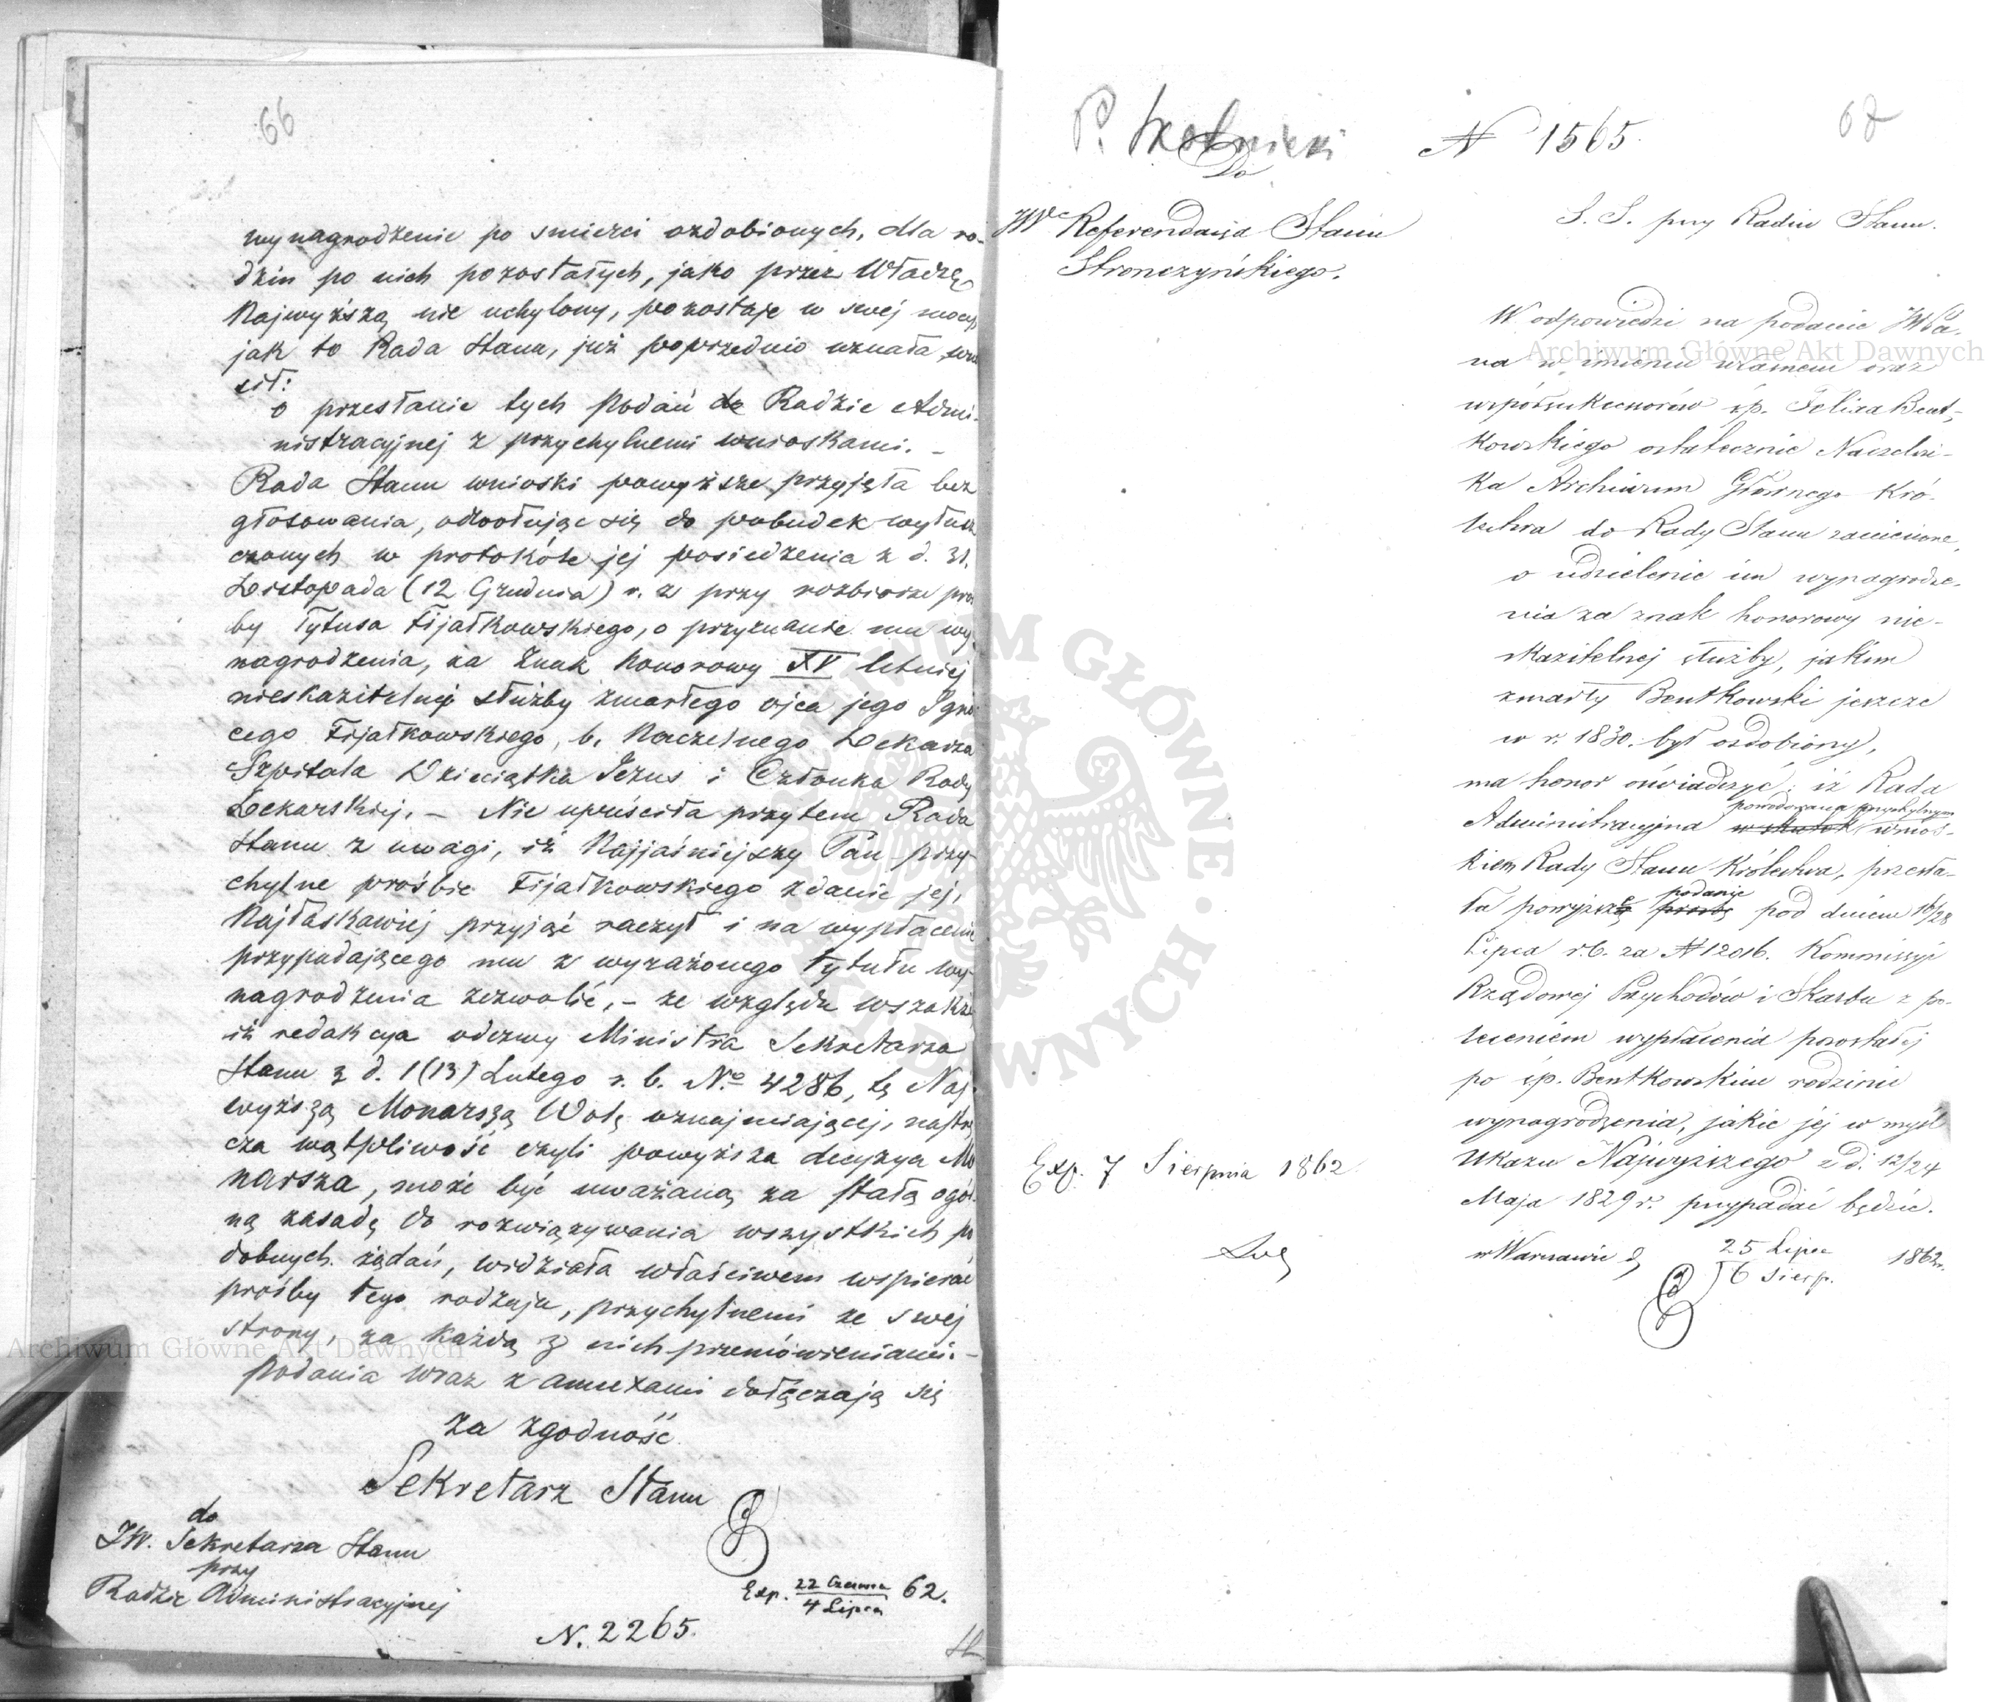 66
wynagrodzenie po smierci ozdobionych, dla ro-
dzin po nich pozostałych, jako przez Władzę
Najwyższą nie uchylony, pozostaje w swej mocy,
jak to Rada Stanu, już poprzednio uznała, wno
sił:
o przesłanie tych Podań do Radzie Admi-
nistracyjnej z przychylnemi wnioskami. –
Rada Stanu wnioski powyższe przyjęła bez
głosowania, odwołując się do pobudek wyłusz
czonych w protokóle jej posiedzenia z d. 31.
Listopada (12 Grudnia) r. z przy rozbiorze proś
by Tytusa Fijałkowskiego, o przyznanie mu wy-
nagrodzenia, za Znak honorowy XV letniej
nieskazitelnej służby zmarłego ojca jego Igna
cego Fijałkowskiego, b. Naczelnego Lekarza
Szpitala Dzieciątka Jezus i Członka Rady
Lekarskiej. – Nie upuściła przytem Rada
Stanu z uwagi, iż Najjaśniejszy Pan przy-
chylne prośbie Fijałkowskiego zdanie jej,
Najłaskawiej przyjąć raczył i na wypłacenie
przypadającego mu z wyrażonego tytułu wy-
nagrodzenia zezwolić, – ze względu wszakże
iż redakcya odezwy Ministra Sekretarza
Stanu z d. 1(13) Lutego r. b. No 4286, tę Naj-
wyższą Monarszą Wolę oznajmiającej, nastrę
cza wątpliwość czyli powyższa decyzya Mo
narsza, może być uważaną za stałą ogól
ną zasadę do rozwiązywania wszystkich po
dobnych żądań, widziała właściwem wspierać
prośby tego rodzaju, przychylnemi ze swej
strony, za każdą z nich przemówieniami. –
Podania wraz z annexami dołączają się
Za zgodność
Sekretarz Stanu
do
JW. Sekretarza Stanu
przy
Radzie Administracyjnej
Exp. 22 Czerwca / 4 Lipca 62.
N. 2265.
P.
N 1565.
Do
JW Referendarza Stanu
Stronczyńskiego.
S. S. przy Radzie Stanu.
W odpowiedzi na podanie JWPa-
na w imieniu własnem oraz
współsukcessorów śp. Felixa Bent-
kowskiego ostatecznie Naczelni-
ka Archiwum Głównego Kró-
lestwa do Rady Stanu zaniesione,
o udzielenie im wynagrodze-
nia za znak honorowy nie-
skazitelnej służby, jakim
zmarły Bentkowski jeszcze
w r. 1830. był ozdobiony,
ma honor oświadczyć, iż Rada
powodowana przychylnym
Administracyjna w skutek wnios-
kiem Rady Stanu Królestwa, przesła-
podanie
ła powyższe prośbę pod dniem 16/28
Lipca r.b. za N 12016. Kommissyi
Rządowej Przychodów i Skarbu z po-
leceniem wypłacenia pozostałej
po śp. Bentkowskim rodzinie
wynagrodzenia, jakie jej w myśl
Ukazu Najwyższego z d. 12/24
Maja 1829 r. przypadać będzie.
Exp. 7 Sierpnia 1862.
w Warszawie d. 25 Lipca / 6 Sierp. 1862 r.
Archiwum Główne Akt Dawnych
Archiwum Główne Akt Dawnych